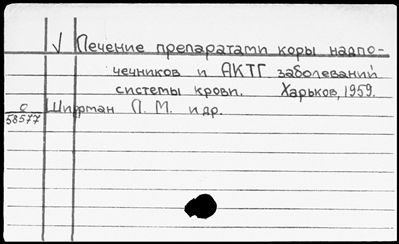 √ Лечение препаратами коры надпо-
чечников и АКТГ заболеваний
системы крови. Харьков, 1959.
с
58577
Шифрман П. М. и др.